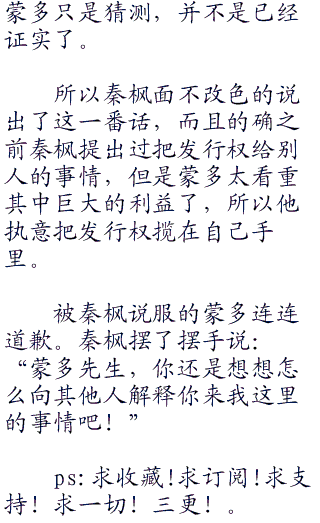 蒙多只是猜测，并不是已经
证实了。
所以秦枫面不改色的说
出了这一番话，而且的确之
前秦枫提出过把发行权给别
人的事情，但是蒙多太看重
其中巨大的利益了，所以他
执意把发行权揽在自己手
里。
被秦枫说服的蒙多连连
道歉。秦枫摆了摆手说：
“蒙多先生，你还是想想怎
么向其他人解释你来我这里
的事情吧！”
ps：求收藏！求订阅！求支
持！求一切！三更！。